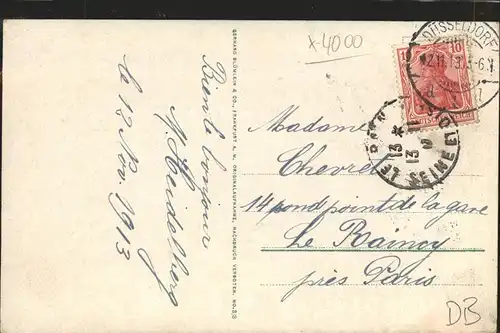 x-4000
Bien le bonjour
N. Heidelberg
le 12 Nov. 1913
GEBRÜDER BLÖMLEIN & CO., FRANKFURT A. M. ORIGINALAUFNAHME, NACHDRUCK VERBOTEN. NO.
DÜSSELDORF
12.11.13.
10
LE
13 *
13 11
SEINE
Madame
Chevret
14 rond point de la gare
Le Raincy
près Paris
DB